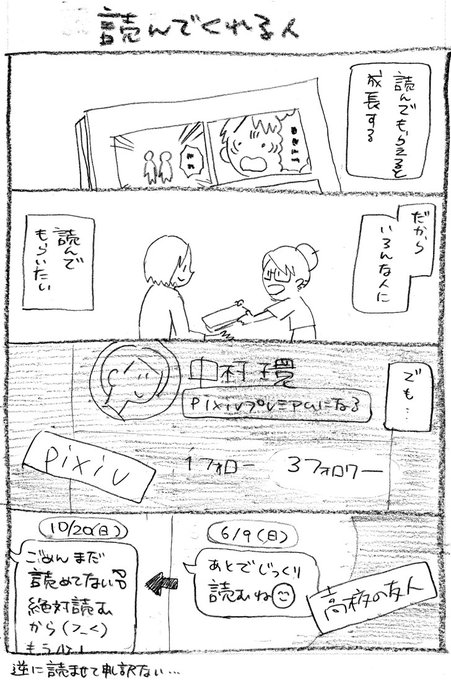 読んでくれる人
読んでもらえると
成長する
だから
いろんな人に
読んで
もらいたい
でも…
中村 環
pixivプレミアムになる
1フォロー
3フォロワー
pixiv
6/9(日)
あとでじっくり
読むね
高校の友人
10/20(日)
ごめんまだ
読めてない
絶対読む
から(>_<)
逆に読ませて申し訳ない…